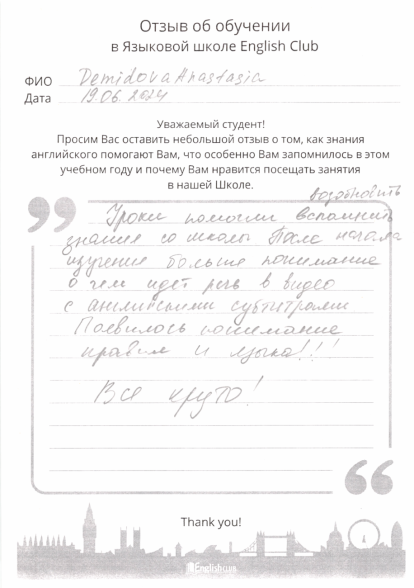 Отзыв об обучении
в Языковой школе English Club
ФИО Demidova Anastasia
Дата 19.06.2024
Уважаемый студент!
Просим Вас оставить небольшой отзыв о том, как знания
английского помогают Вам, что особенно Вам запомнилось в этом
учебном году и почему Вам нравится посещать занятия
в нашей Школе.
возобновить
Уроки помогли вспомнить
знания со школы После начала
изучения больше понимание
о чем идет речь в видео
с английскими субтитрами
Появилось понимание
правил и языка!!!
Все круто!
Thank you!
English Club